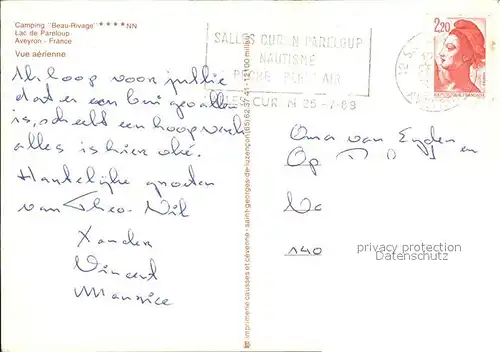 Camping "Beau-Rivage" ****NN
Lac de Pareloup
Aveyron - France
Vue aérienne
SALLES CURAN PARELOUP
NAUTISME
PECHE PLEIN AIR
25-7-89
2,20
Ik hoop voor jullie
dat er een bui gevallen
is, scheelt een hoop werk
alles is hier oké.
Hartelijke groeten
van Theo. Wil
Xander
Vincent
Maurice
imprimerie causses et cévenne - saint-georges-de-luzençon (65) 62.37.41 - 12100 millau
Oma van Eyden en
Op
140
privacy protection
Datenschutz